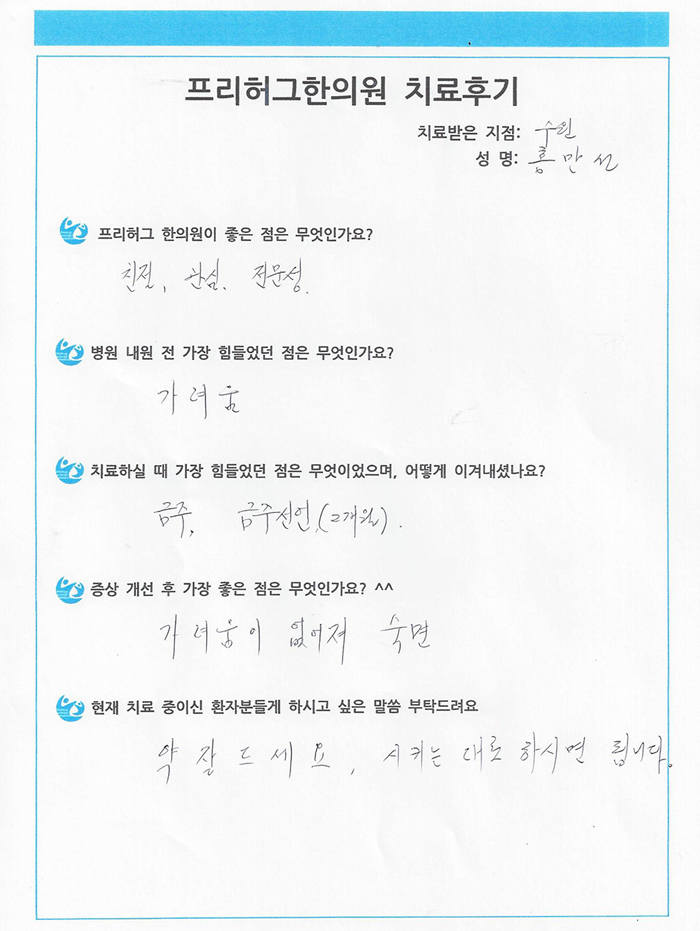 프리허그한의원 치료후기
치료받은 지점: 수원
성 명: 홍만선
프리허그 한의원이 좋은 점은 무엇인가요?
친절, 관심, 전문성.
병원 내원 전 가장 힘들었던 점은 무엇인가요?
가려움
치료하실 때 가장 힘들었던 점은 무엇이었으며, 어떻게 이겨내셨나요?
금주, 금주선언,(2개월).
증상 개선 후 가장 좋은 점은 무엇인가요? ^^
가려움이 없어져 숙면
현재 치료 중이신 환자분들게 하시고 싶은 말씀 부탁드려요
약 잘 드세요, 시키는 대로 하시면 됩니다.